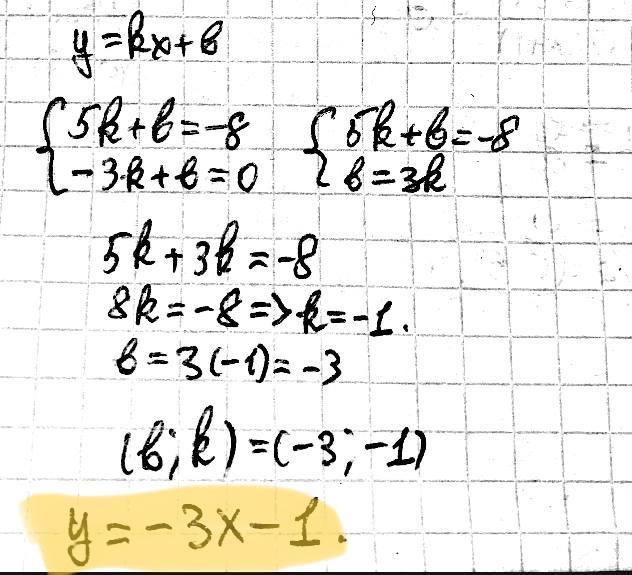 y = kx + b
5k + b = -8
-3k + b = 0
5k + b = -8
b = 3k
5k + 3k = -8
8k = -8 => k = -1.
b = 3(-1) = -3
(b; k) = (-3; -1)
y = -3x - 1.